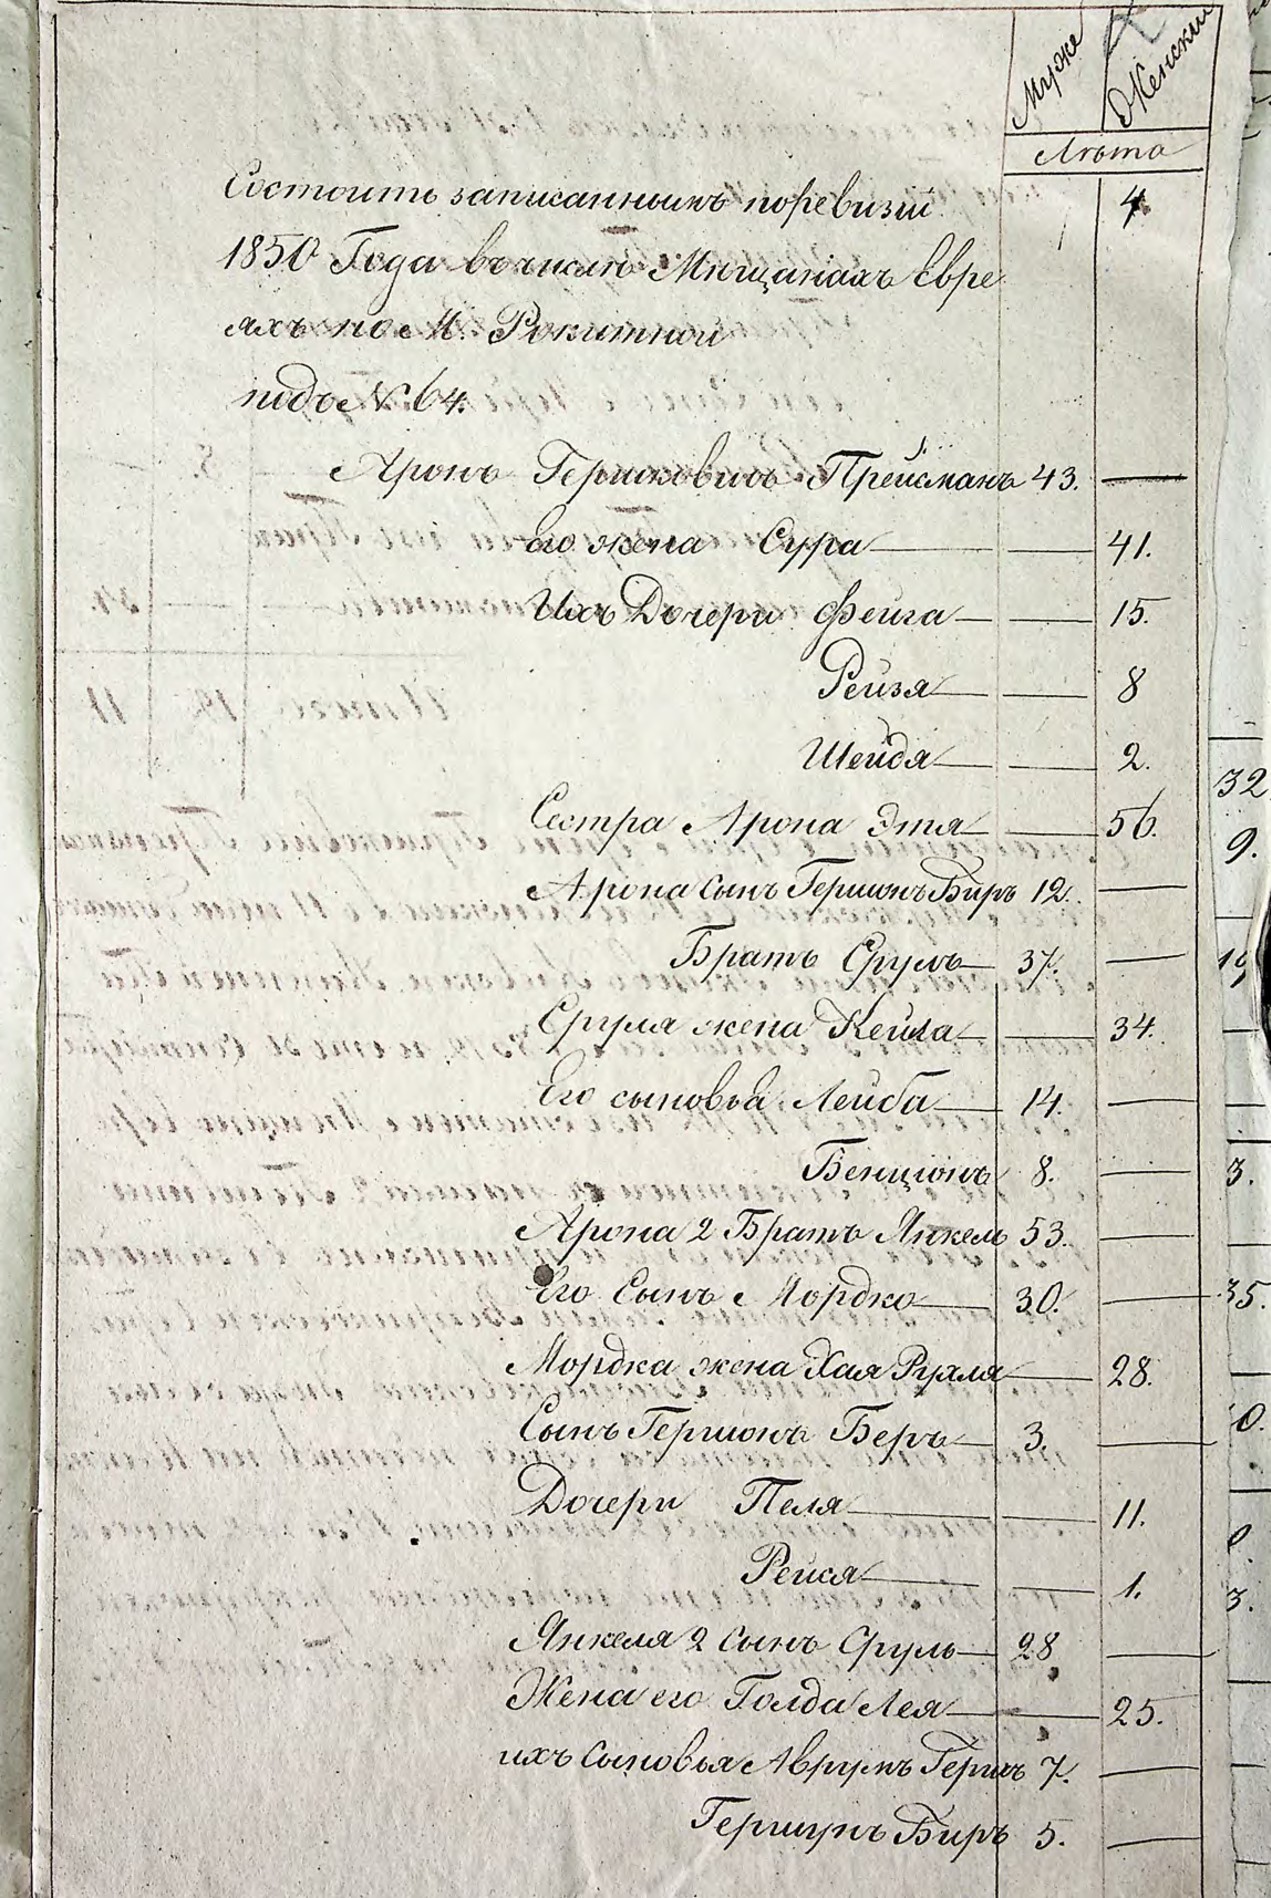 Муже Женскии
Лѣта
Состоитъ записаннымъ поревизіи
1850 Года въ числѣ Мѣщанахъ Евре
яхъ по М: Рокитной
подъ № 64.
Аронъ Гершковичь Прейсманъ 43. —
Его жена Сура — — 41.
Ихъ Дочери Фейга — — 15.
Рейзя — — 8
Шейдя — — 2.
Сестра Арона Этя — — 56.
Арона Сынъ Гершонъ Биръ 12. —
Братъ Сруль — 37. —
Сруля жена Кейла — — 34.
Его сыновья Лейба — 14. —
Бенціонъ 8. —
Арона 2 Братъ Янкель 53. —
Его Сынъ Мордко — 30. —
Мордка жена Хая Рухля — 28.
Сынъ Гершонъ Беръ — 3. —
Дочери Пеля — — 11.
Рейся — — 1.
Янкеля 2 Сынъ Сруль — 28 —
Жена его Голда Лея — — 25.
ихъ Сыновья Аврумъ Гершъ 7. —
Гершунъ Биръ 5. —
32
9.
3.
35.
0.
3.